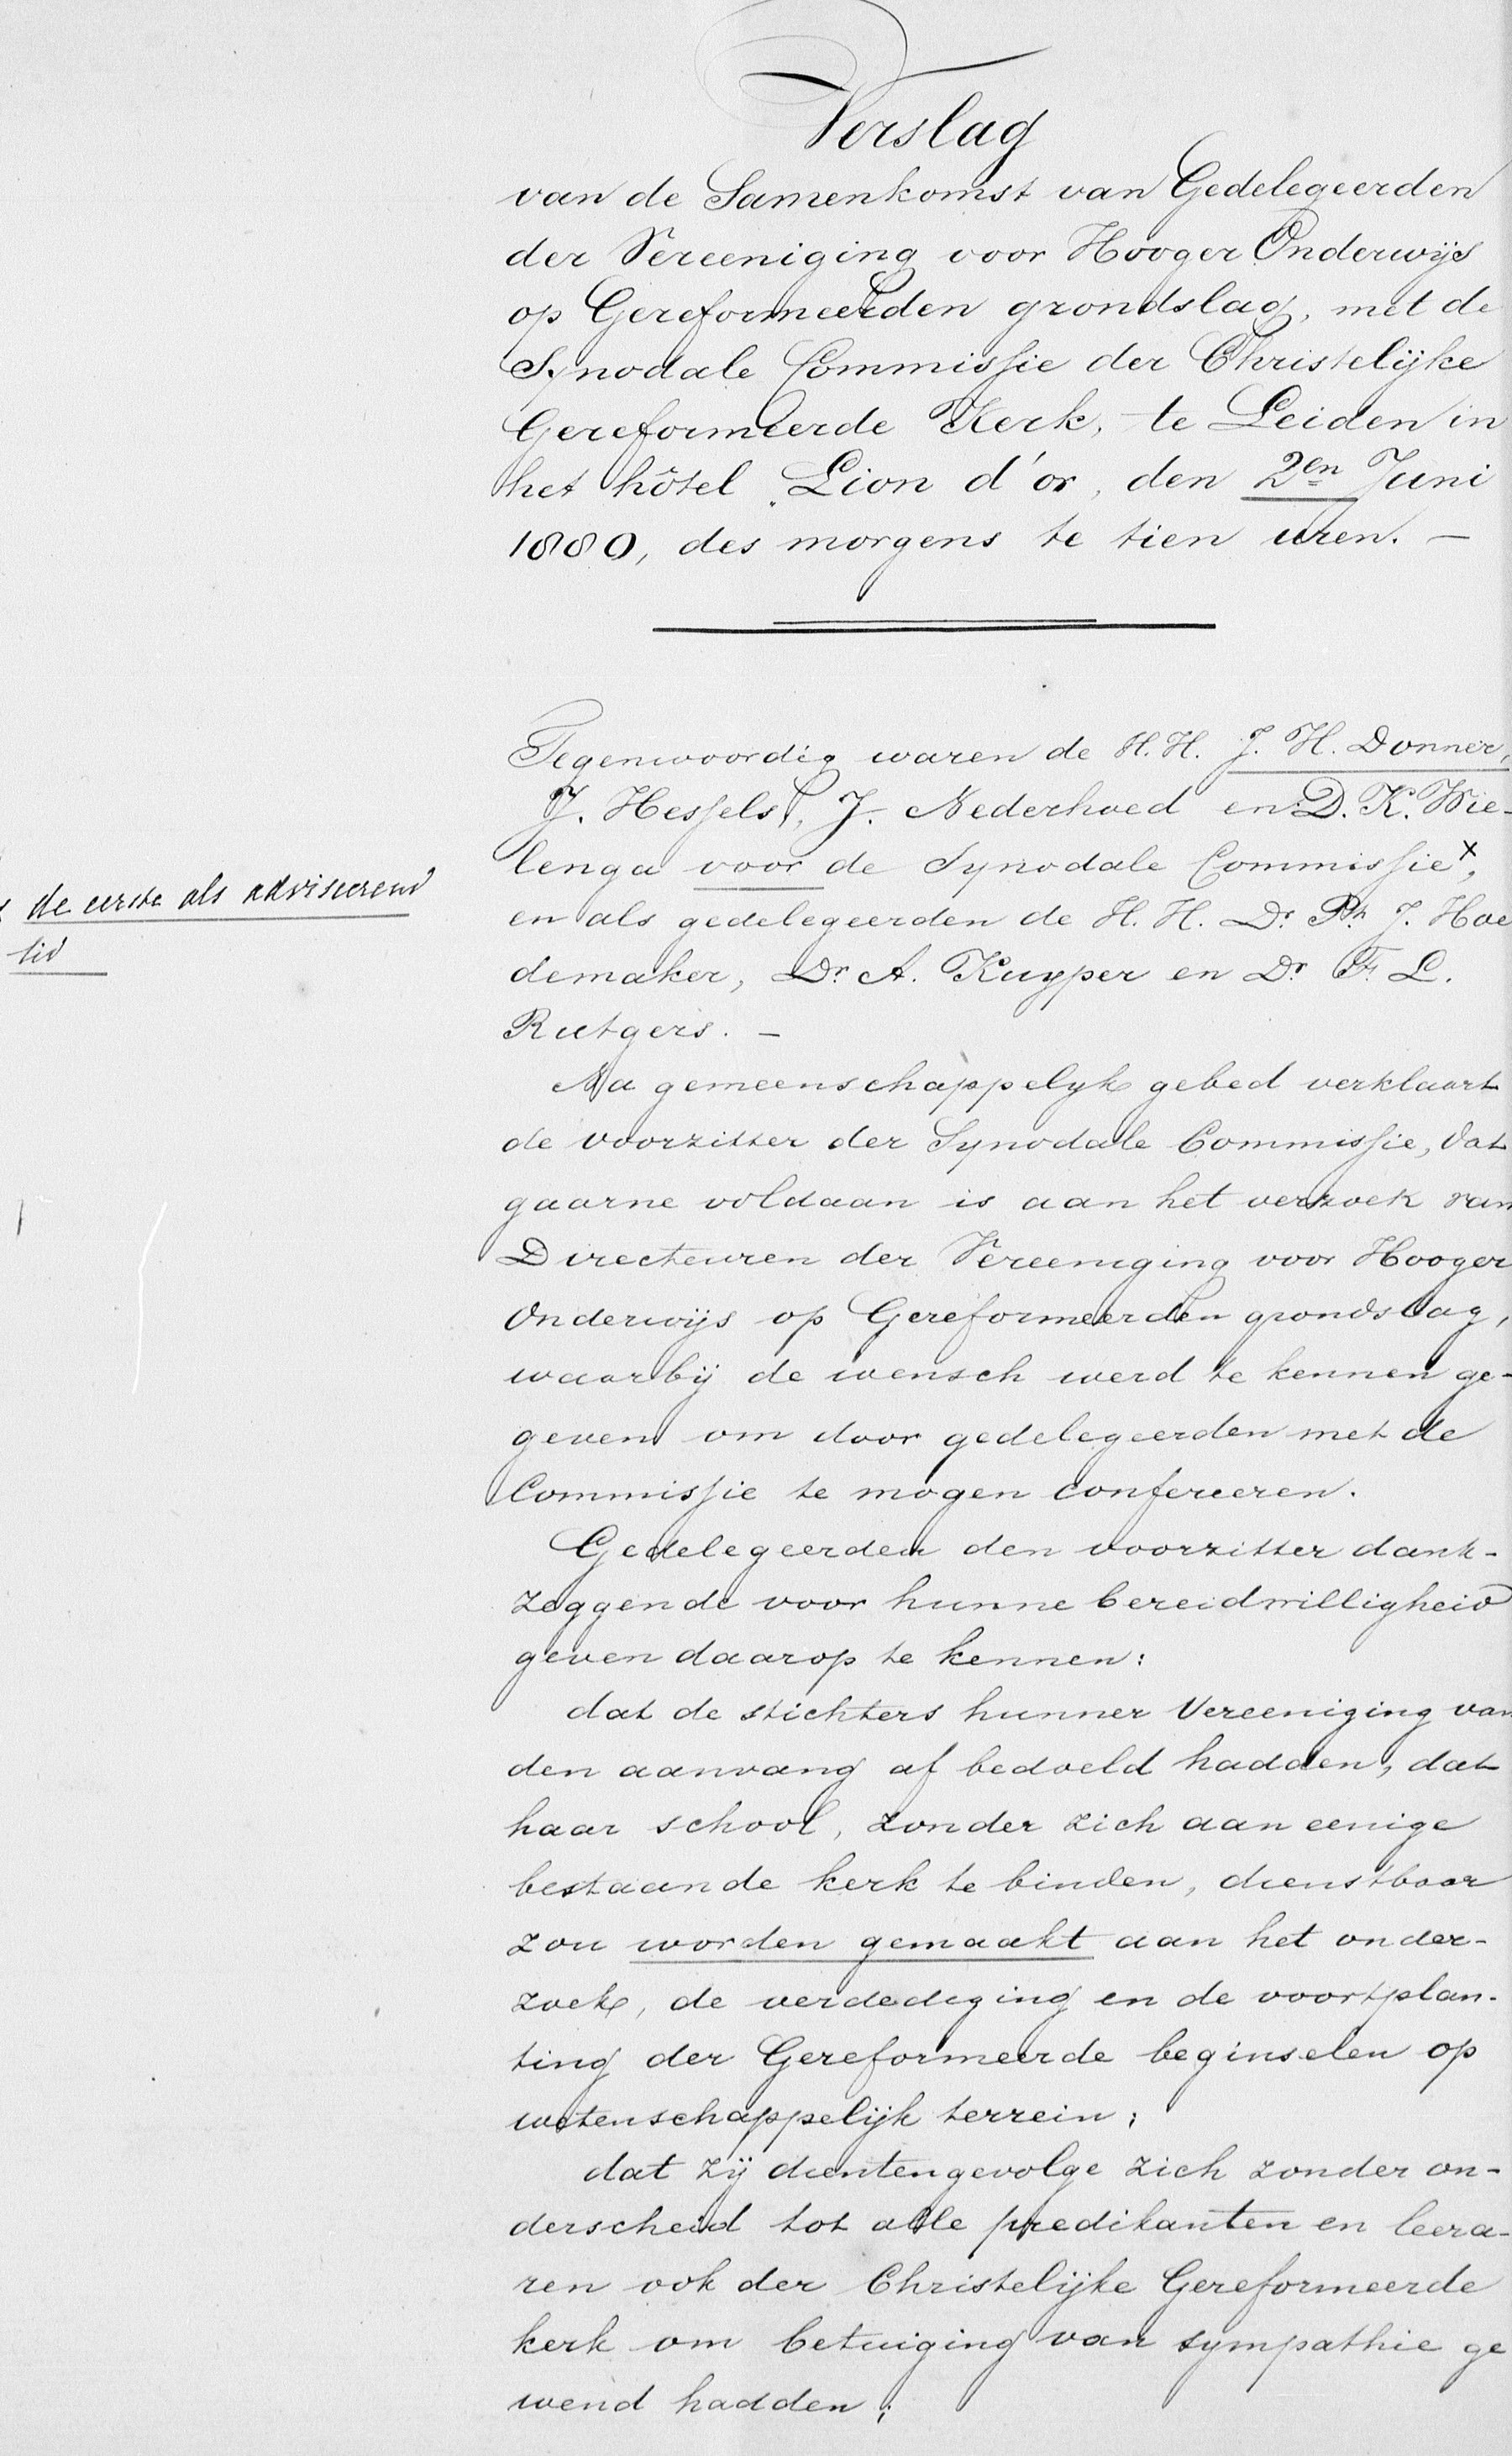 Verslag
van de Samenkomst van Gedelegeerden
der Vereeniging voor Hooger Onderwijs
op Gereformeerden grondslag, met de
Synodale Commissie der Christelijke
Gereformeerde Kerk, te Leiden in
het hôtel Lion d'or, den 2en Juni
1880, des morgens te tien uren. —
Tegenwoordig waren de H.H. J. H. Donner,
J. Hessels, J. Nederhoed en D. K. Wie-
lenga voor de Synodale Commissie x,
x de eerste als adviseerend
lid
en als gedelegeerden de H. H. Dr. Ph. J. Hoe
demaker, Dr. A. Kuyper en Dr F. L.
Rutgers. —
Na gemeenschappelyk gebed verklaart
de voorzitter der Synodale Commissie, dat
gaarne voldaan is aan het verzoek van
Directeuren der Vereeniging voor Hooger
Onderwijs op Gereformeerden grondslag,
waarbij de wensch werd te kennen ge-
geven om door gedelegeerden met de
Commissie te mogen confereeren.
Gedelegeerden den voorzitter dank-
zeggende voor hunne bereidwilligheid
geven daarop te kennen:
dat de stichters hunner Vereeniging van
den aanvang af bedoeld hadden, dat
haar school, zonder zich aan eenige
bestaande kerk te binden, dienstbaar
zou worden gemaakt aan het onder-
zoek, de verdediging en de voortplan-
ting der Gereformeerde beginselen op
wetenschappelijk terrein;
dat zij dientengevolge zich zonder on-
derscheid tot alle predikanten en leera-
ren ook der Christelijke Gereformeerde
kerk om betuiging van sympathie ge
wend hadden;